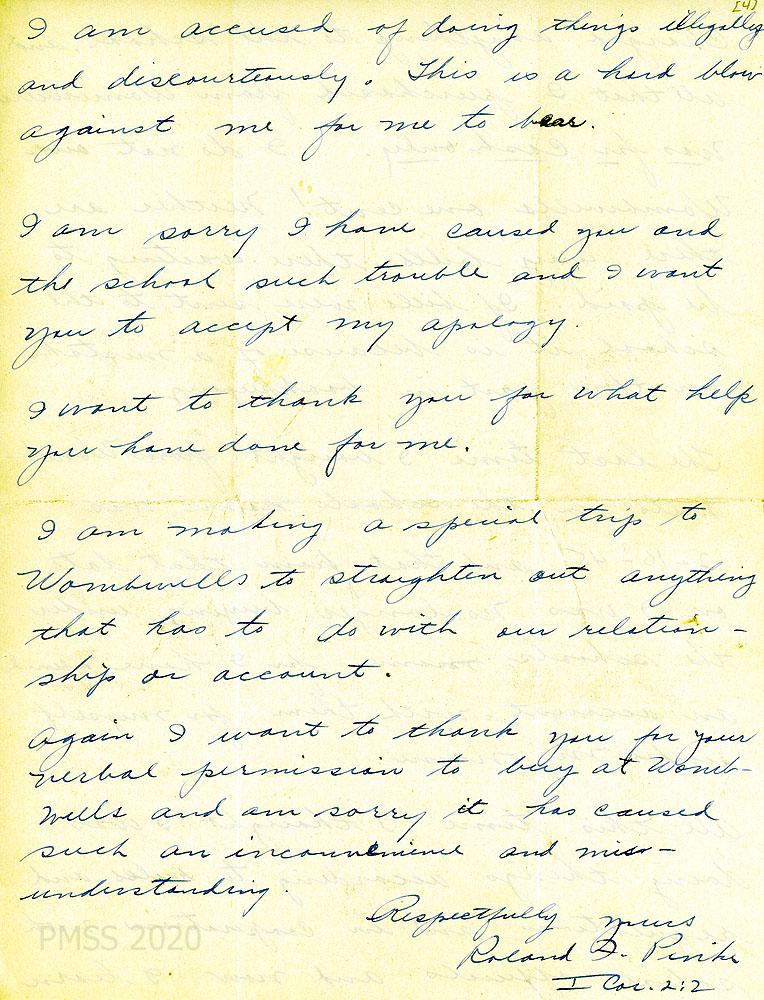 [4]
I am accused of doing things illegally
and discourteously. This is a hard blow
against me for me to bear.
I am sorry I have caused you and
the school such trouble and I want
you to accept my apology.
I want to thank you for what help
you have done for me.
I am making a special trip to
Wombwells to straighten out anything
that has to do with our relation-
ship or account.
Again I want to thank you for your
verbal permission to buy at Womb-
wells and am sorry it has caused
such an inconvenience and mis-
understanding.
Respectfully yours
Roland F.
I Cor. 2:2
PMSS 2020